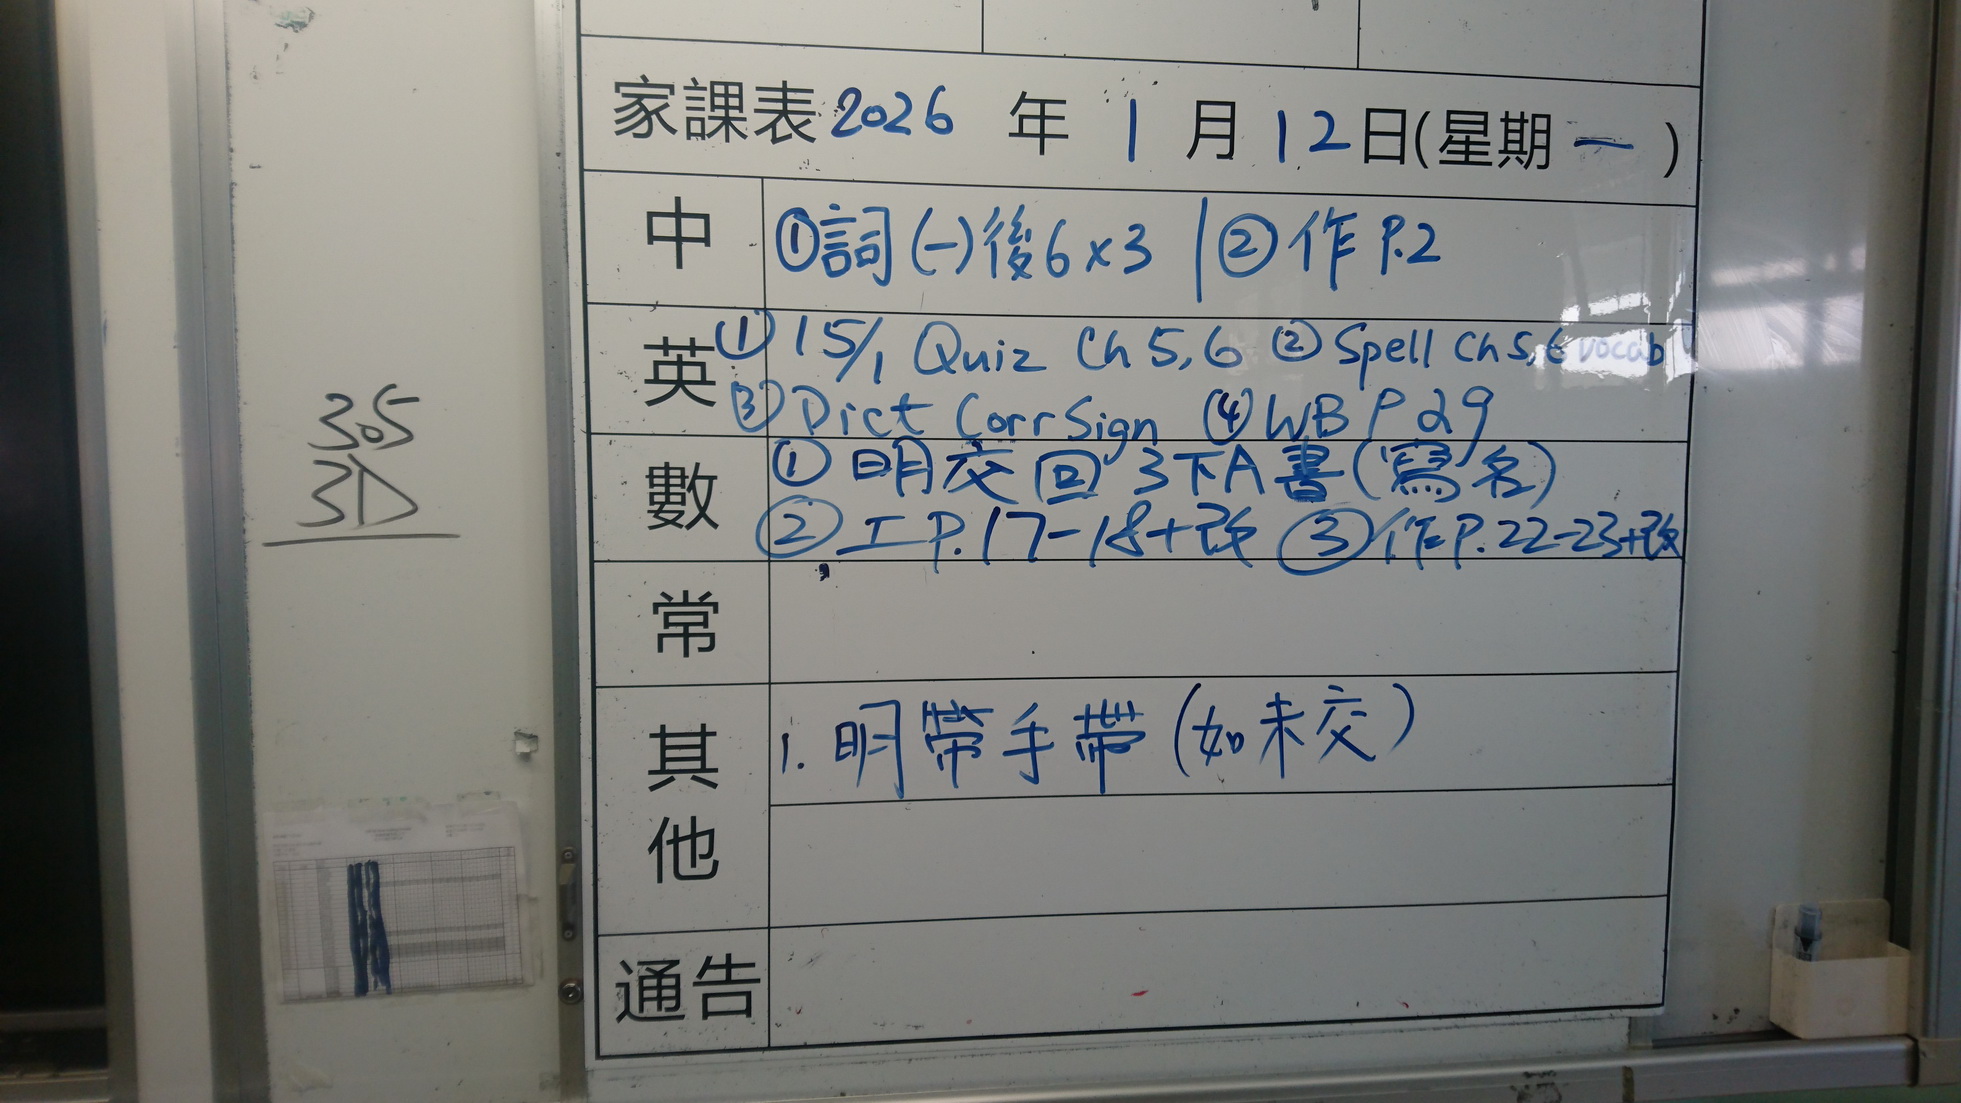 家課表 2026 年 1 月 12 日(星期 一 )
中 ①詞(一)後6x3 | ②作 P.2
英 ① 15/1 Quiz Ch 5, 6 ② Spell Ch 5, 6 vocab
③ Dict Corr Sign ④ WB P 29
數 ① 明交回 3下A書(寫名)
② 工 P.17-18+改 ③ 作P.22-23+改
常
其他 1. 明帶手帶 (如未交)
通告
305
3D